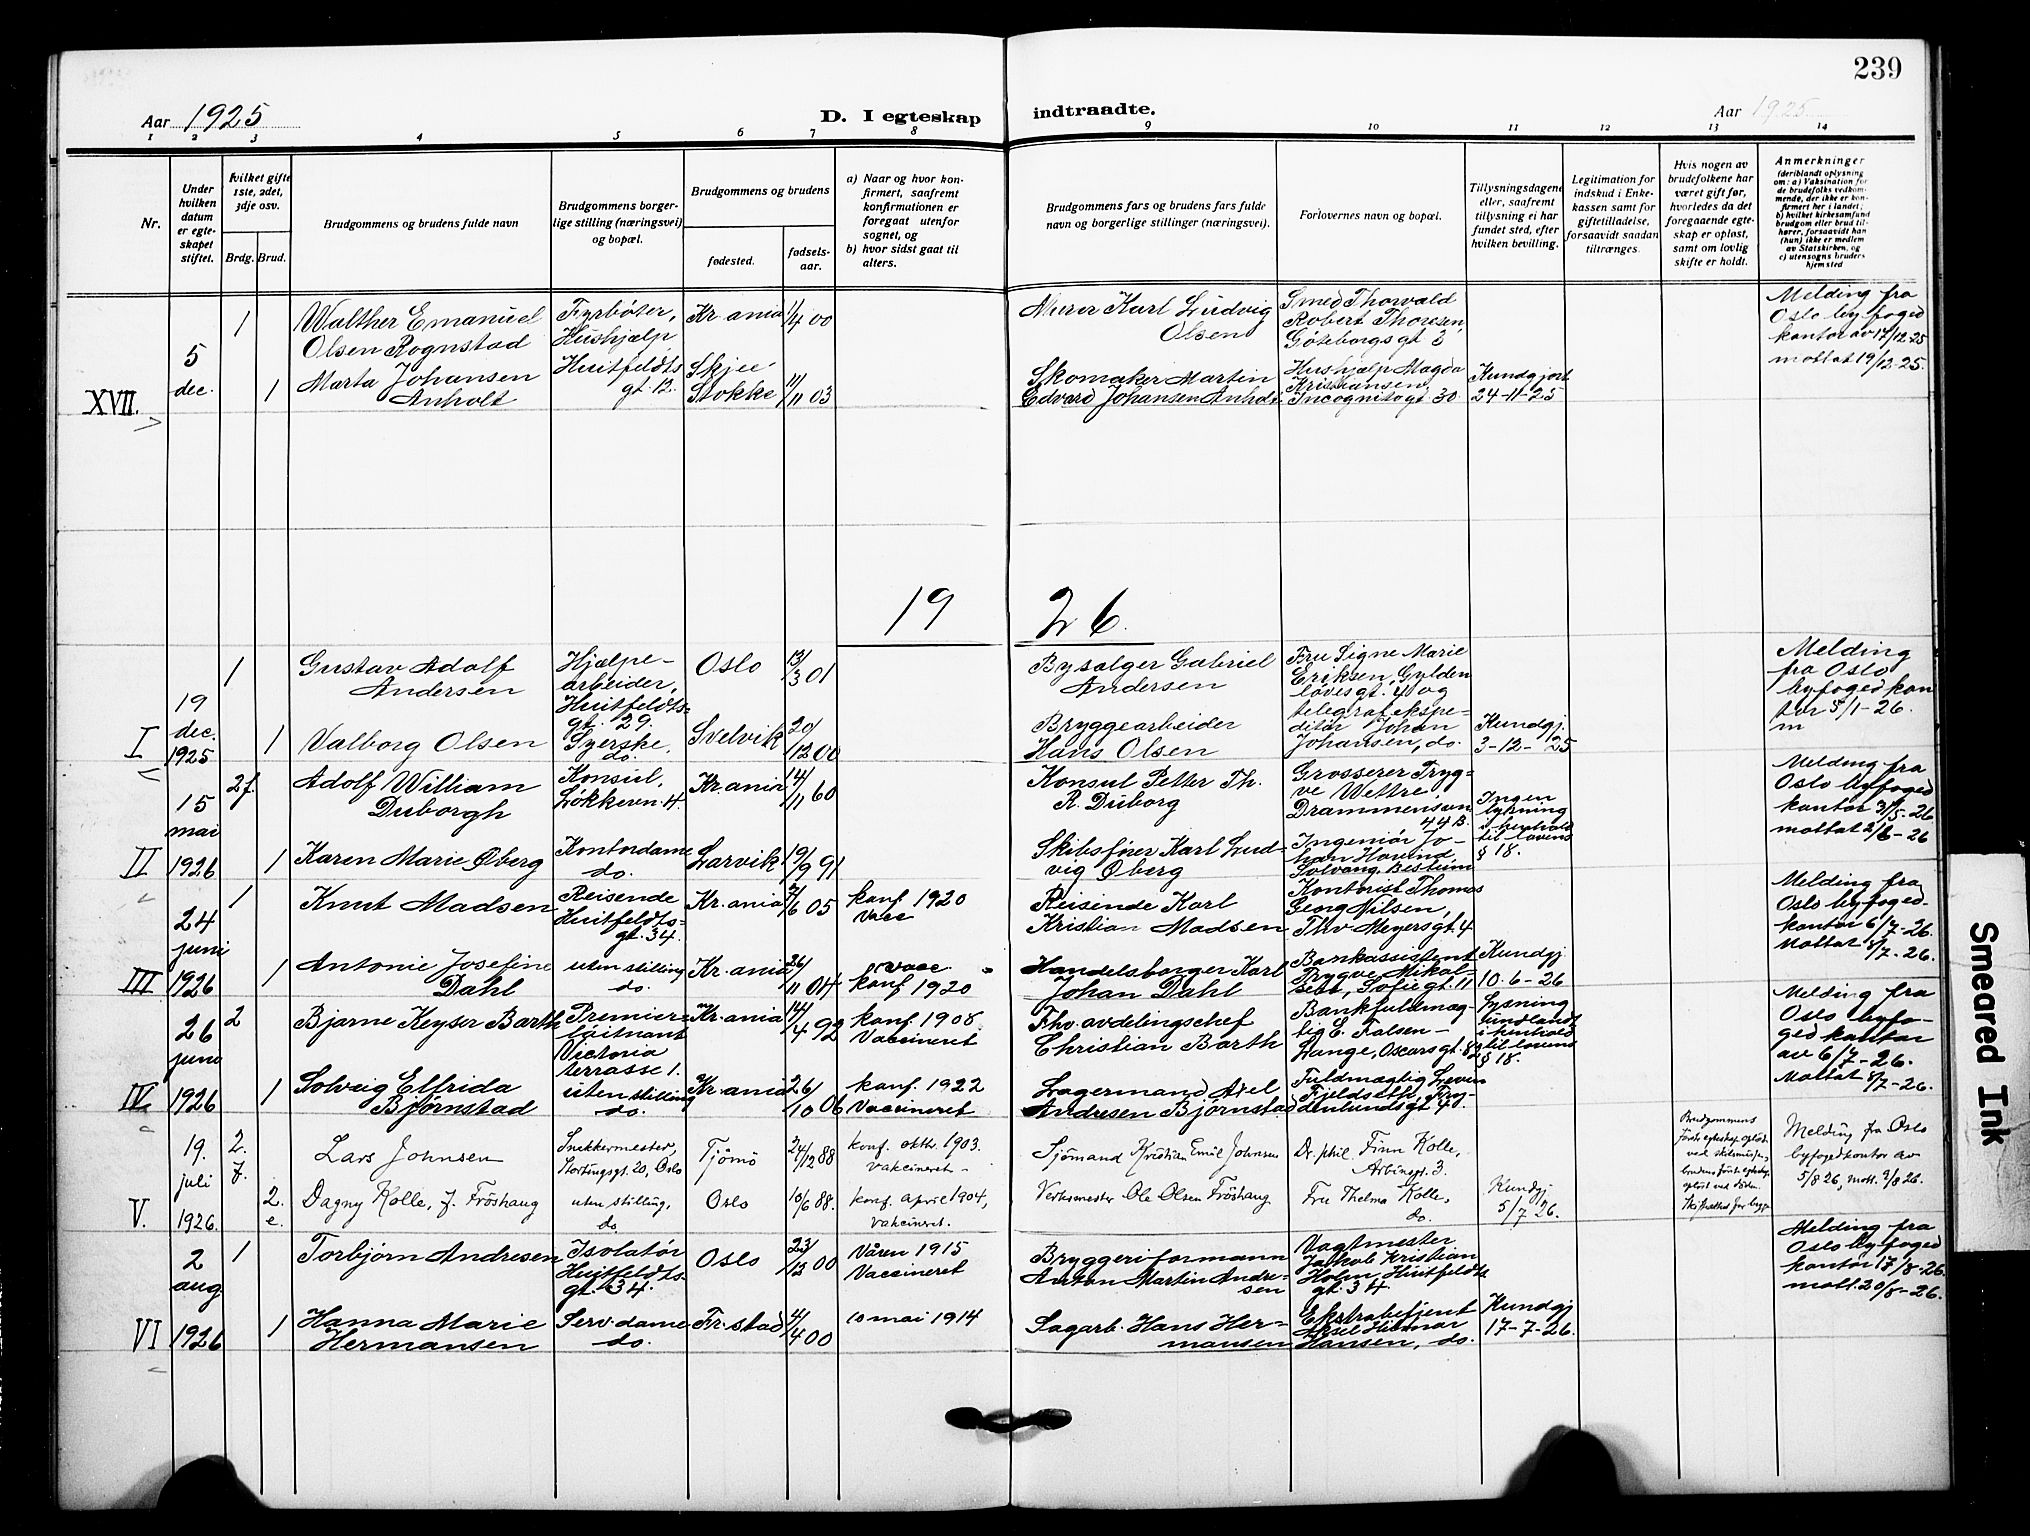 239
Aar 1925
D. I egteskap indtraadte.
Aar 1925
1 2 3 4 5 6 7 8 9 10 11 12 13 14
Nr.
Under hvilken datum er egteskapet stiftet.
Hvilket gifte 1ste, 2det, 3dje osv.
Brdg. Brud.
Brudgommens og brudens fulde navn
Brudgommens borgerlige stilling (næringsvei) og bopæl.
Brudgommens og brudens
fødested.
fødselsaar.
a) Naar og hvor konfirmert, saafremt konfirmationen er foregaat utenfor sognet, og
b) hvor sidst gaat til alters.
Brudgommens fars og brudens fars fulde navn og borgerlige stillinger (næringsvei).
Forlovernes navn og bopæl.
Tillysningsdagene eller, saafremt tillysning ei har fundet sted, efter hvilken bevilling.
Legitimation for indskud i Enkekassen samt for giftetilladelse, forsaavidt saadan tiltrænges.
Hvis nogen av brudefolkene har været gift før, hvorledes da det foregaaende egteskap er opløst, samt om lovlig skifte er holdt.
Anmerkninger
(deriblandt oplysning om: a) Vaksination for de brudefolks vedkommende, der ikke er konfirmert her i landet; b) hvilket kirkesamfund brudgom eller brud tilhører, forsaavidt han (hun) ikke er medlem av Statskirken, og c) utensogns bruders hjemsted
XVII. 5 dec. 1
Walther Emanuel
Olsen Rognstad
Fyrbøter,
Kr.ania 1/4 00
Murer Karl Ludvig
Olsen
Smed Thorvald
Robert Thoresen,
Göteborgsgt 3
Melding fra
Oslo byfoged
kontor av 17/12-25
mottat 19/12-25.
1
Marta Johansen
Anholt
Hushjælp
Huitfeldts
gt. 12.
Skjee
Stokke 11/11 03
Skomaker Martin
Edvard Johansen Anholt
Hushjælp Magda
Kristiansen,
Incognitogt. 30
Kundgjort
24-11-25
1926.
I 19 dec. 1925 1
Gustav Adolf
Andersen
Hjælpe-
arbeider,
Huitfeldts-
gt. 29.
Oslo 13/3 01
Bysælger Gabriel
Andersen
Fru Signe Marie
Eriksen, Gylden
løvesgt. 4 og
telegrafekspe-
ditør Johan
Johansen, do.
Melding
fra Oslo
byfogedkon
tor 5/1-26.
m
1
Valborg Olsen
Syerske,
do.
Svelvik 20/12 00
Bryggearbeider
Hans Olsen
Kundgj.
3-12-25
II 15 mai 1926 2f.
Adolf William
Duborgh
Konsul,
Løkkevn. 4.
Kr.ania 14/11 60
Konsul Petter Th.
R. Duborg
Grosserer Tryg-
ve Wettre
Drammensvn
44 B.
Ingen
lysning
i henhold
til lovens
§ 18.
Melding fra
Oslo byfoged
kontor 31/5-26
mottat 2/6-26
1
Karen Marie Øberg
Kontordame
do.
Larvik 19/9 91
Skibsfører Karl Lud-
vig Øberg
Ingeniør Jo-
han Hovind,
Solvang, Bestum
III 24 juni 1926 1
Knut Madsen
Reisende
Huitfeldts-
gt. 34.
Kr.ania 2/6 05
konf 1920
Vacc
Reisende Karl
Kristian Madsen
Kontorist Thomas
Georg Nilsen,
Thv Meyersgt. 4
Melding fra
Oslo byfoged-
kontor 6/7-26.
Mottat 8/7-26.
1
Antonie Josefine
Dahl
uten stilling
do.
Kr.ania 26/11 04
vacc.
konf 1920
Handelsborger Karl
Johan Dahl
Bankassistent
Trygve Mikal-
sen, Sofiegt. 11
Kundgj.
10-6-26
IV 26 juni 1926 2
Bjarne Keyser Barth
Premier-
løitnant
Victoria
terrasse 1.
Kr.ania 14/4 92
konf. 1908.
Vaccineret
Fhv. avdelingschef
Christian Barth
Bankfuldmæg-
tig E. Falsen-
Lange, Oscarsgt. 82
Lysning
undlatt
i henhold
til lovens
§ 18.
Melding fra
Oslo byfo-
gedkontor
av 6/7-26.
Mottat 8/7-26.
1
Solveig Elfrida
Bjørnstad
uten stilling
do.
Kr.ania 26/10 06
konf. 1922
Vaccineret
Lagermand Axel
Andresen Bjørnstad
Fuldmægtig
V. 19. juli 1926. 2. f.
Lars Johnsen
Snekkermester,
Stortingsgt. 20, Oslo
Tjömö 24/12 88
konf. oktb. 1903.
vakcineret-
Sjömand Kristian Emil Johnsen
Dr. phil. Finn Kolle,
Arbinsgt. 3.
Brudgommens
Melding fra Oslo
byfogedkontor av
5/8 26,
2. e.
Dagny Kolle, f. Fröshaug
uten stilling,
do
Oslo 10/6 88.
konf. april 1904,
vakcineret.
Verksmester Ole Olsen Fröshaug
Fru Thelma Kolle,
do.
Kundgj
5/7 26.
VI 2 aug 1926 1
Torbjørn Andresen
Isolatør
Huitfeldts-
gt. 34.
Oslo 23/12 00
Våren 1915
Vaccineret
Bryggeriformann
Anton Martin Andre-
sen
Vagtmester
Jakob Kristian
Holm Huitfeldts
gt. 34
Melding fra
Oslo byfoged
kontor 17/8-26.
mott. 20/8-26.
1
Hanna Marie
Hermansen
Serv. dame
do.
Fr.stad 4/4 00
10 mai 1914
Sagarb. Hans Her-
mansen
Ekstrabetjent
Aksel Hilmar
Hansen, do.
Kundgj
17-7-26.
Smeared Ink